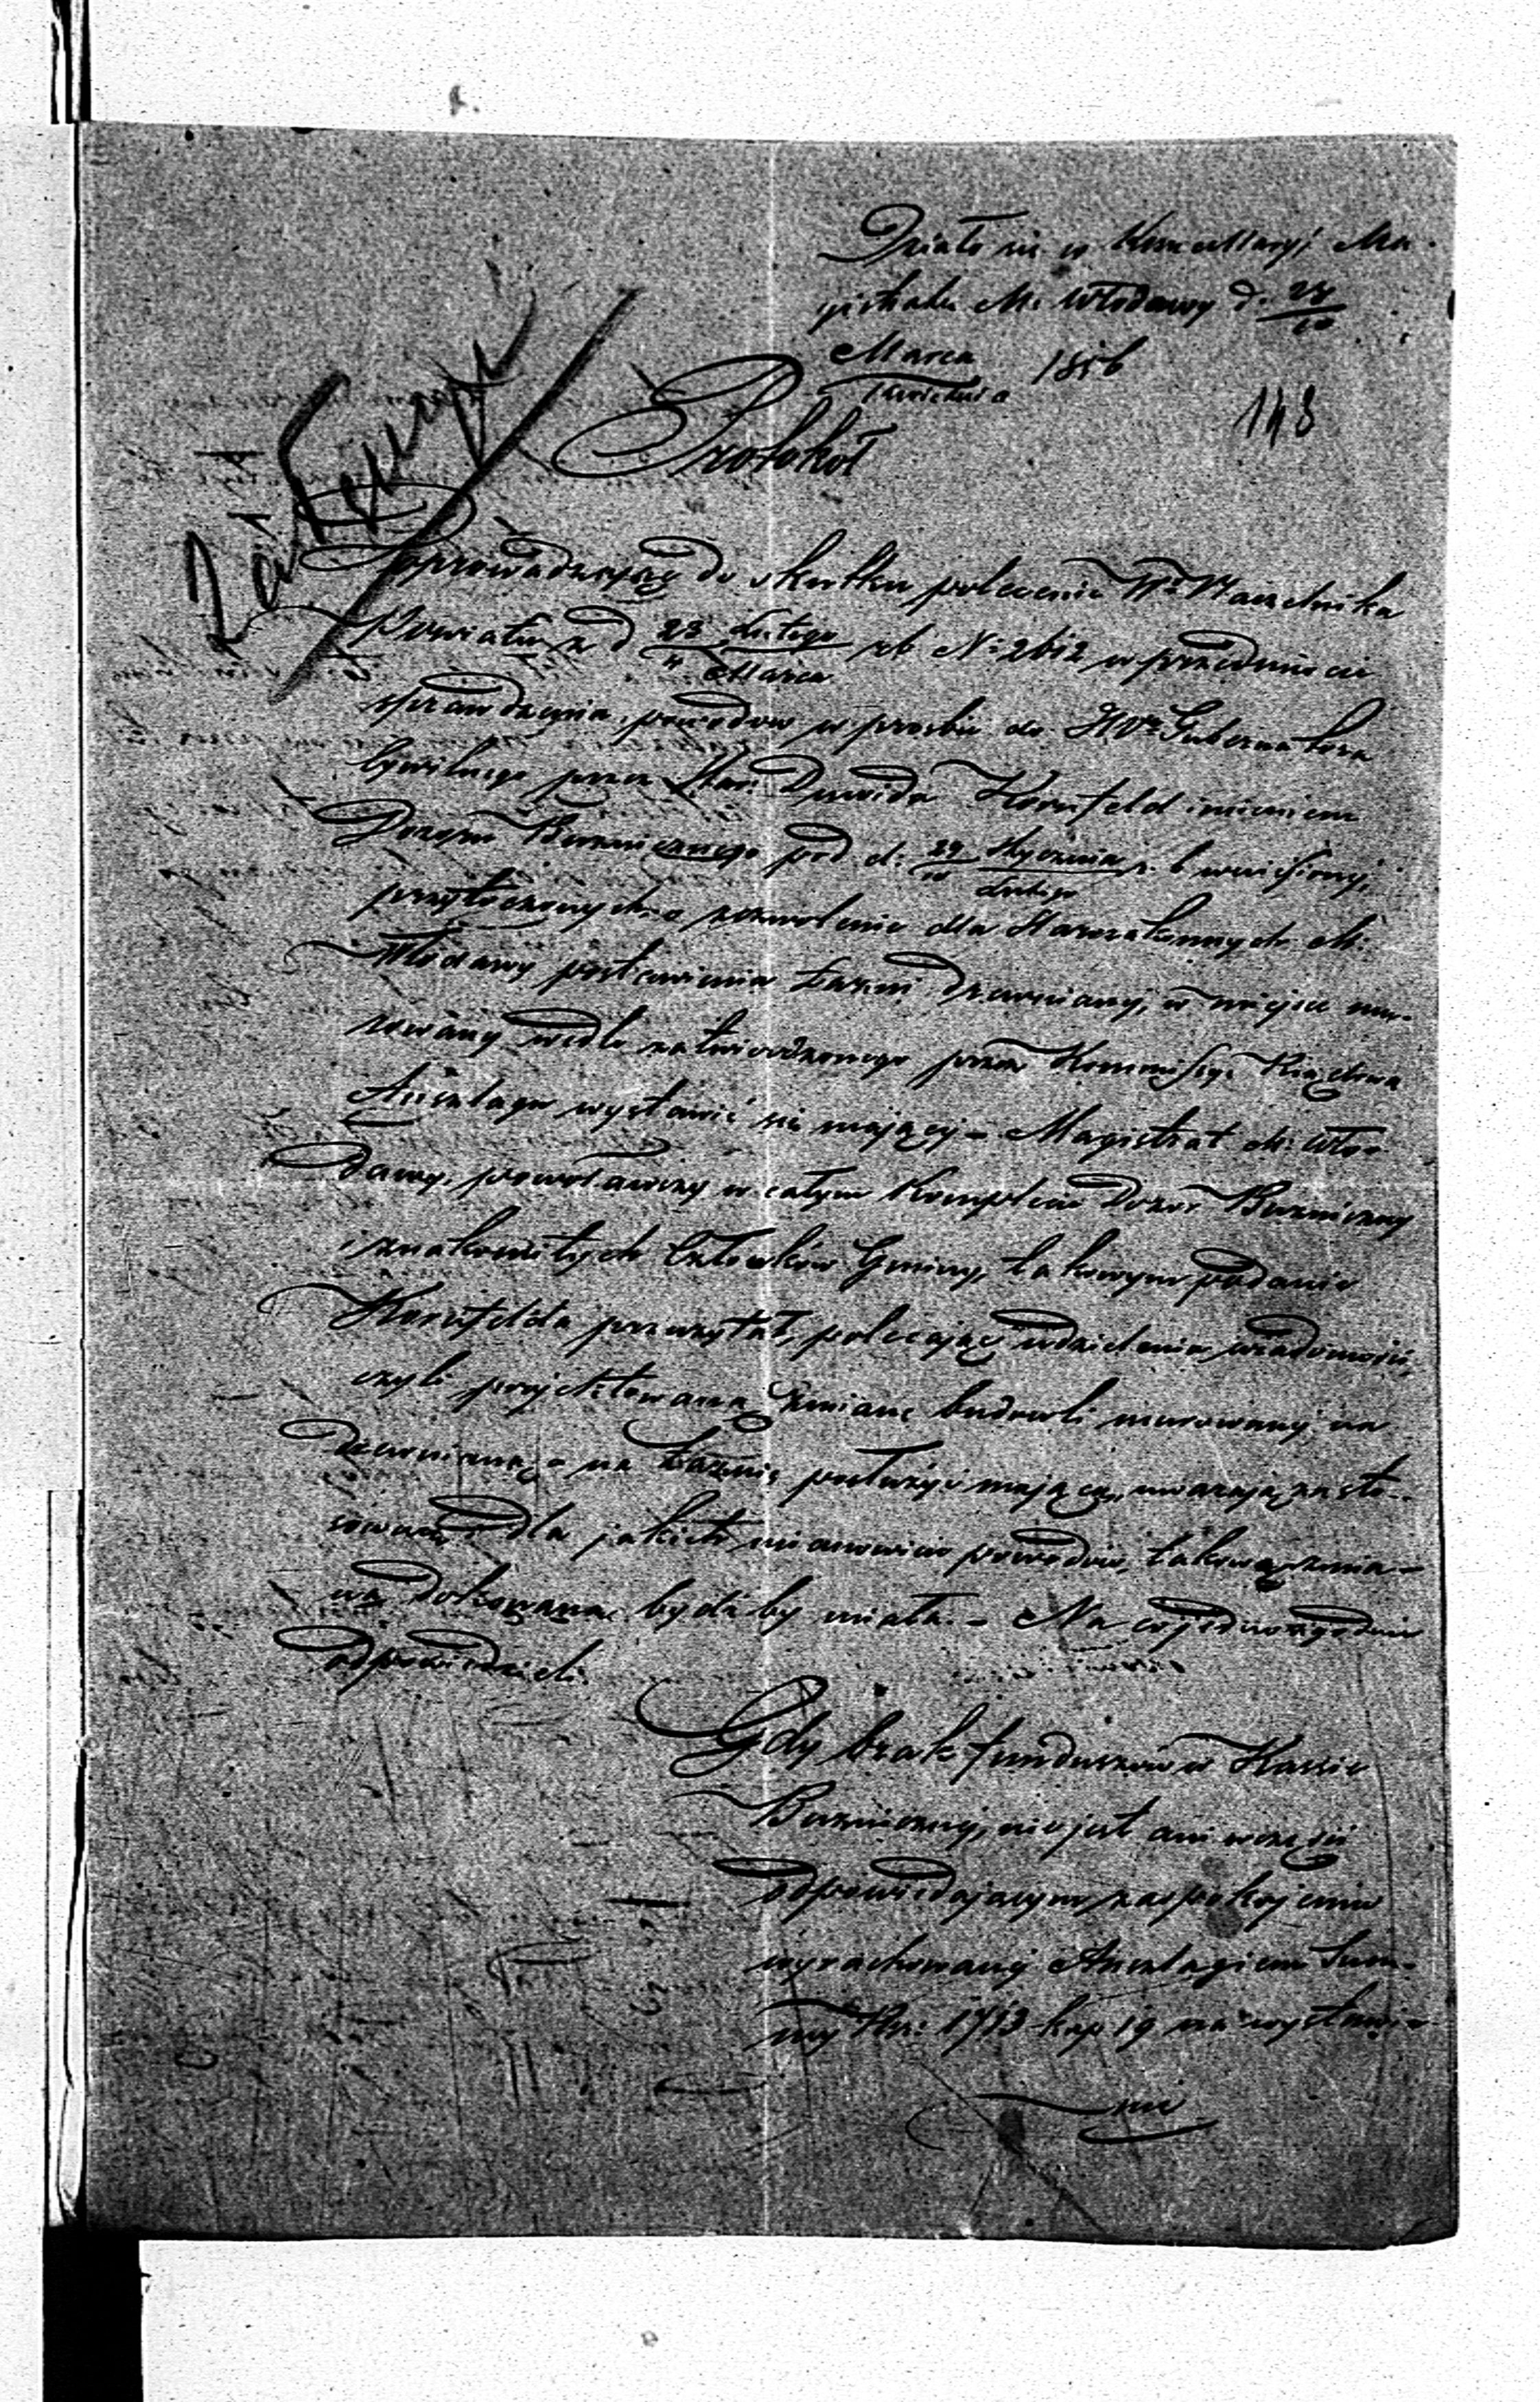 Działo się w Kancellaryi Ma-
gistratu M. Włodawy d. 29/10
Marca/Kwietnia 1856
143
Protokół
Zaprowadzając do skutku polecenie Wo Naczelnika
Powiatu z d 23 Lutego/4 Marca rb No 2612 w przedmiocie
sprawdzenia powodów w prosbie do JWo Gubernatora
Cywilnego przez Star: Dawida Kornfeld imieniem
Dozoru Bużniczego pod d. 29 Stycznia/10 Lutego r. b wniesionej,
przytoczonych o zezwolenie dla Starozakonnych M.
Włodawy postawienia Łazni drewnianej, w miejsce mu-
rowanej wedle zatwierdzonego przez Kommissyę Rządową
Anszlagu wystawić się mającej - Magistrat M. Wło-
dawy, powoławszy w całym komplecie Dozór Bużniczny
i znakomitych Członków Gminy, takowym podanie
Kornfelda przeczytał, polecając udzielenia wiadomości,
czyli projektowaną zmianę budowli murowanej na
drewnianą - na Łaźnię posłużyć mającą, uważają za sto-
sowną i dla jakich mianowicie powodów, takowa zmia-
na dokonaną bydźby miała. - Na co jednozgodnie
odpowiedzieli.
Gdy brak funduszów w Kassie
Bużnicznej, nie jest ani w części
odpowiedającym zaspokojeniu
wyrachowanej Anszlagiem Sum-
my Rsr: 1713 kop 19 na wystawie-
nie